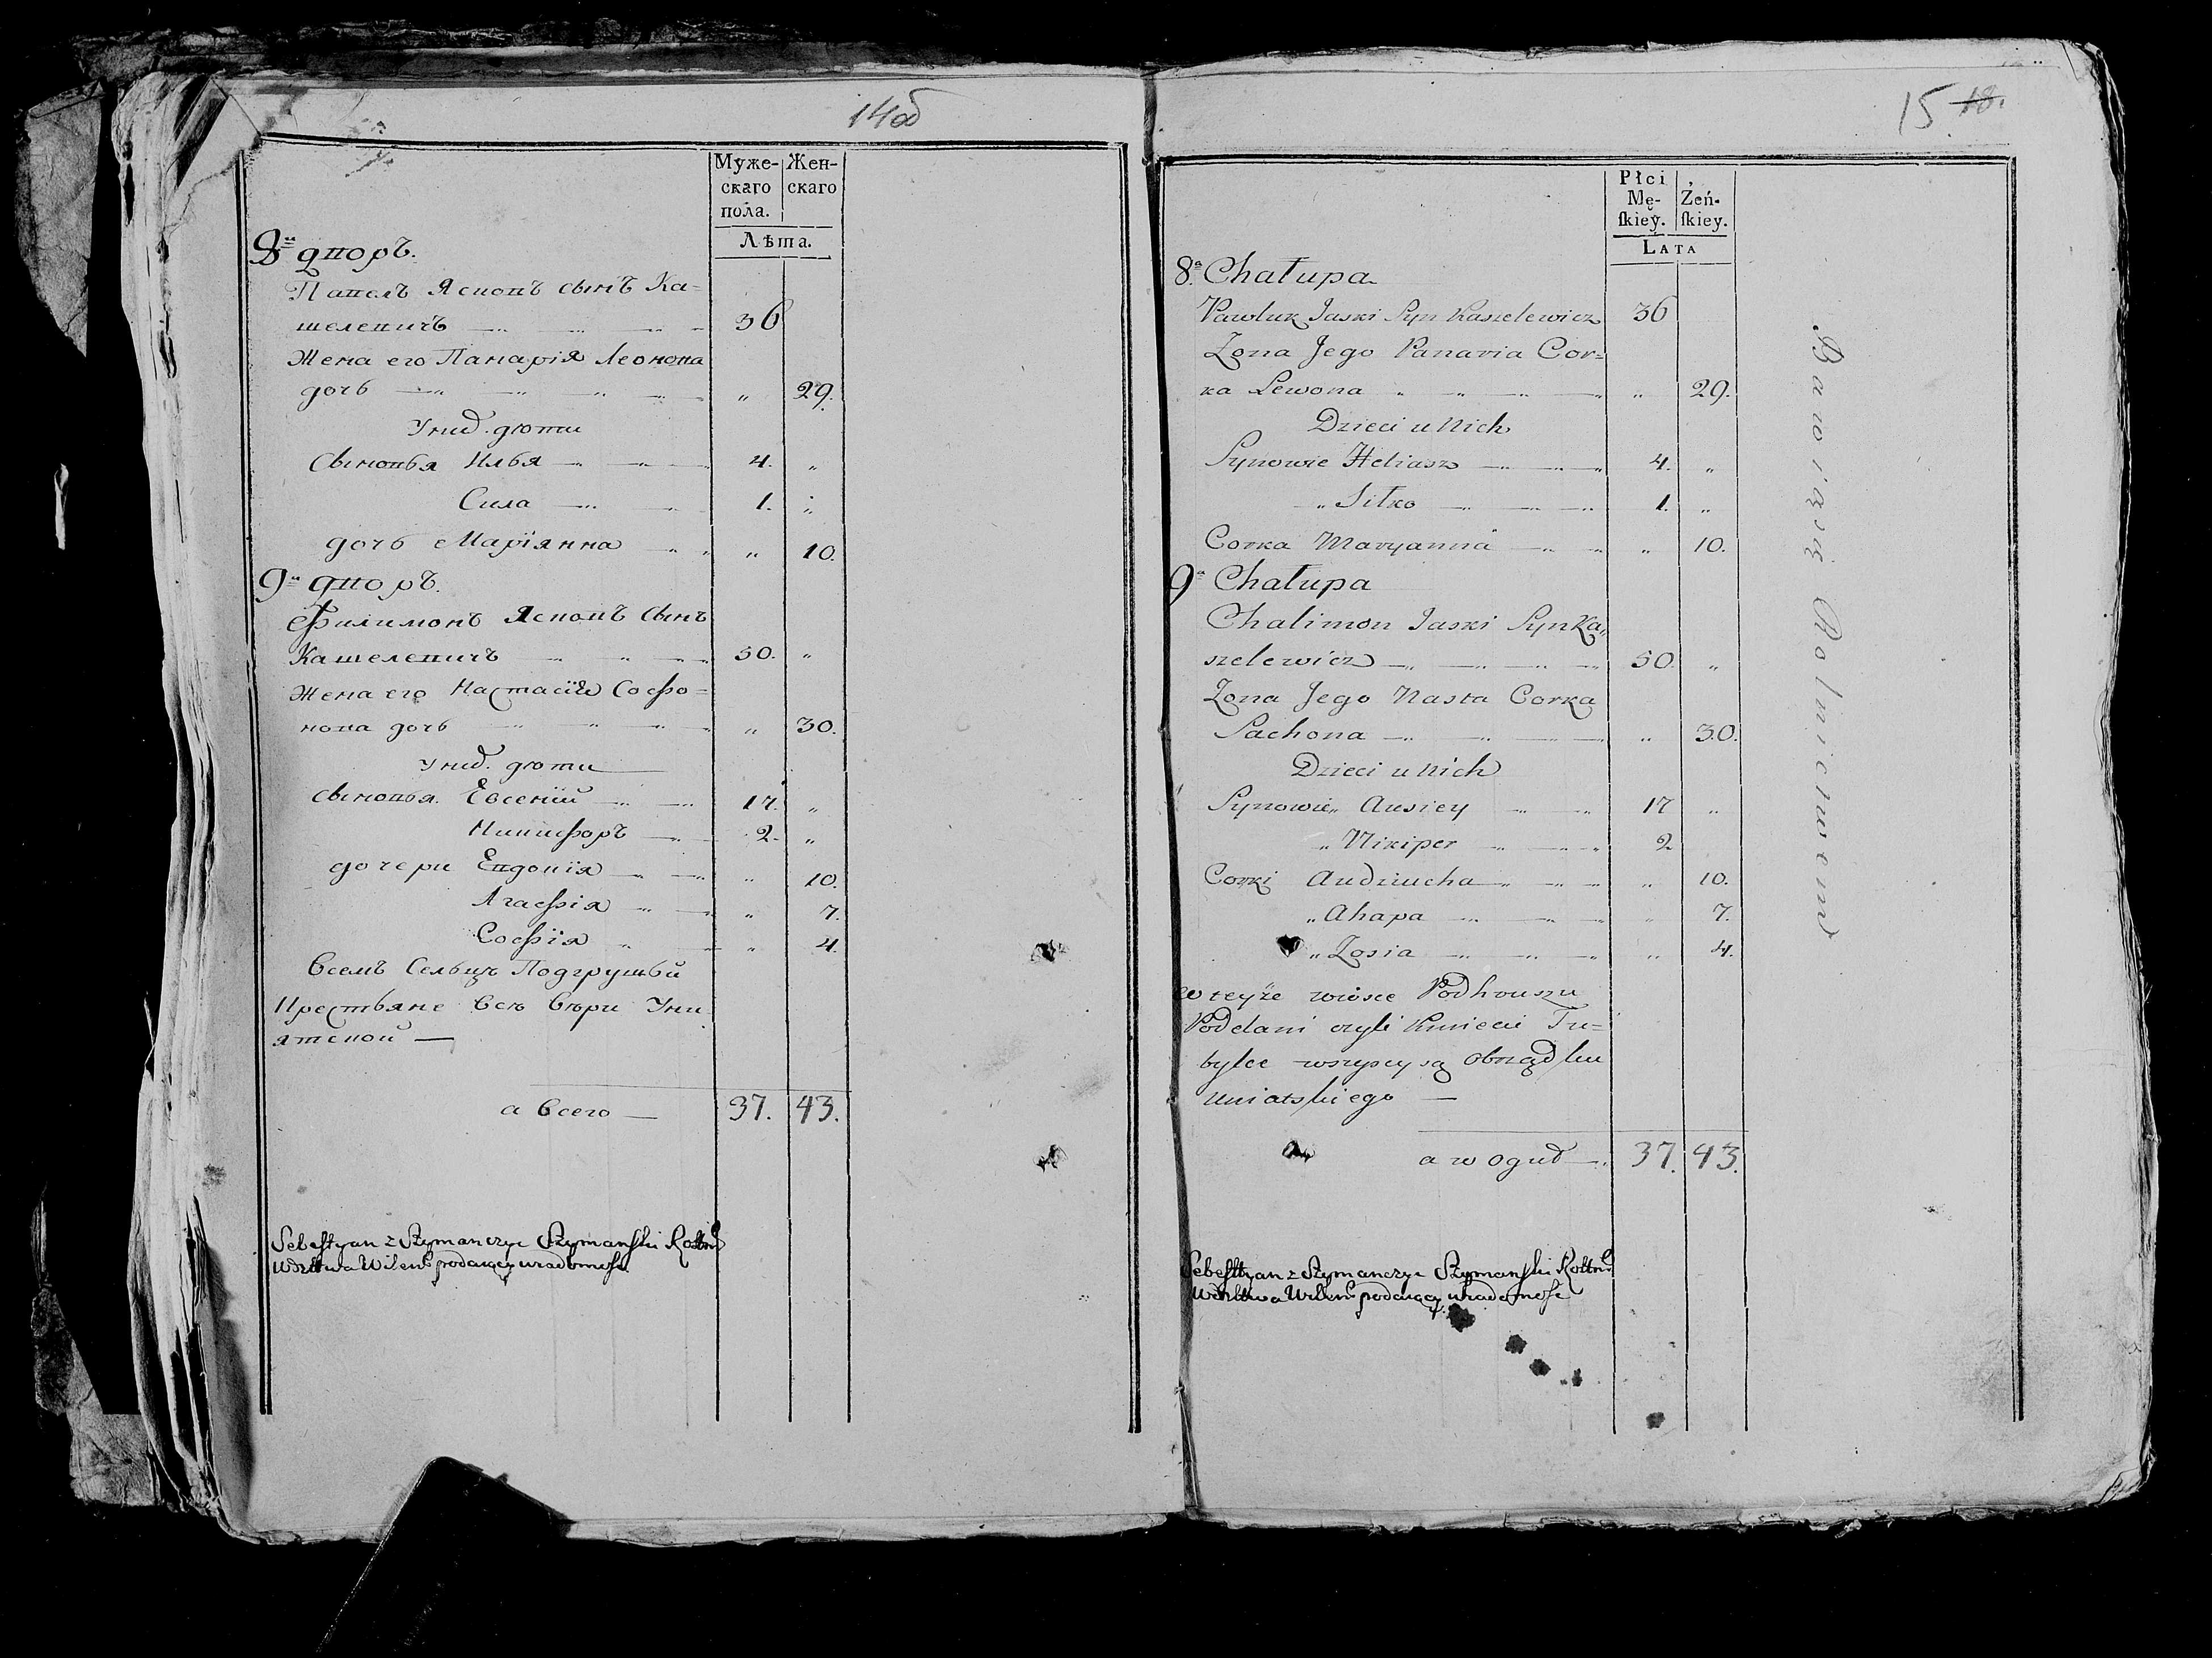 14об
Муже-
скаго
пола.
Жен-
скаго
Лѣта.
8й дворъ.
Павелъ Ясковъ сынъ Ка=
шелевичъ 36
Жена его Панарія Леонова
дочь „ 29.
У нид. дюти
Сыновья Илья 4. „
Сила 1. „
дочь Маріянна „ 10.
9й дворъ.
Филимонъ Ясковъ Сынъ
Кашелевичъ 50. „
Жена его Настасія Софо=
нова дочь „ 30.
У нид. дюти
Сыновья. Евсеній 17. „
Никифоръ 2. „
дочери Евдокія „ 10.
Агафія „ 7.
Софія „ 4.
Всемъ Сельцъ Подгрушьй
Крестьяне Всъ Въри Уни
ятской —
а Всего — 37. 43.
Sebestyan z Szymanczyc Szymanski Rottm
Wdztwa Wilen podaiący wiadomosc
15. 18.
Płci
Mę-
skiey.
Żeń-
skiey.
LATA
8a Chałupa
Pawluk Jaski Syn Kaszelewicz 36
Zona Jego Panaria Cor=
ka Lewona „ 29.
Dzieci u Nich
Synowie Heliasz 4. „
„ Siłko 1. „
Corka Maryanna „ 10.
9a Chałupa
Chalimon Jaski Syn Ka„
szelewicz 50. „
Zona Jego Nasta Corka
Sachona „ 30.
Dzieci u Nich
Synowie„ Ausiey 17 „
„ Nikiper 2
Corki Audziucha „ 10.
„ Ahapa „ 7.
„ Zosia „ 4.
w teyże wiosce Podhruszu
Poddani czyli Kmiecie Tu=
bylce wszyscy są obrządku
Uniatskiego —
a w oguł 37. 43.
Sebestyan z Szymanczyc Szymanski Rottm
Wdztwa Wilen podaiący wiadomosc
Bawiący się Rolnictwem